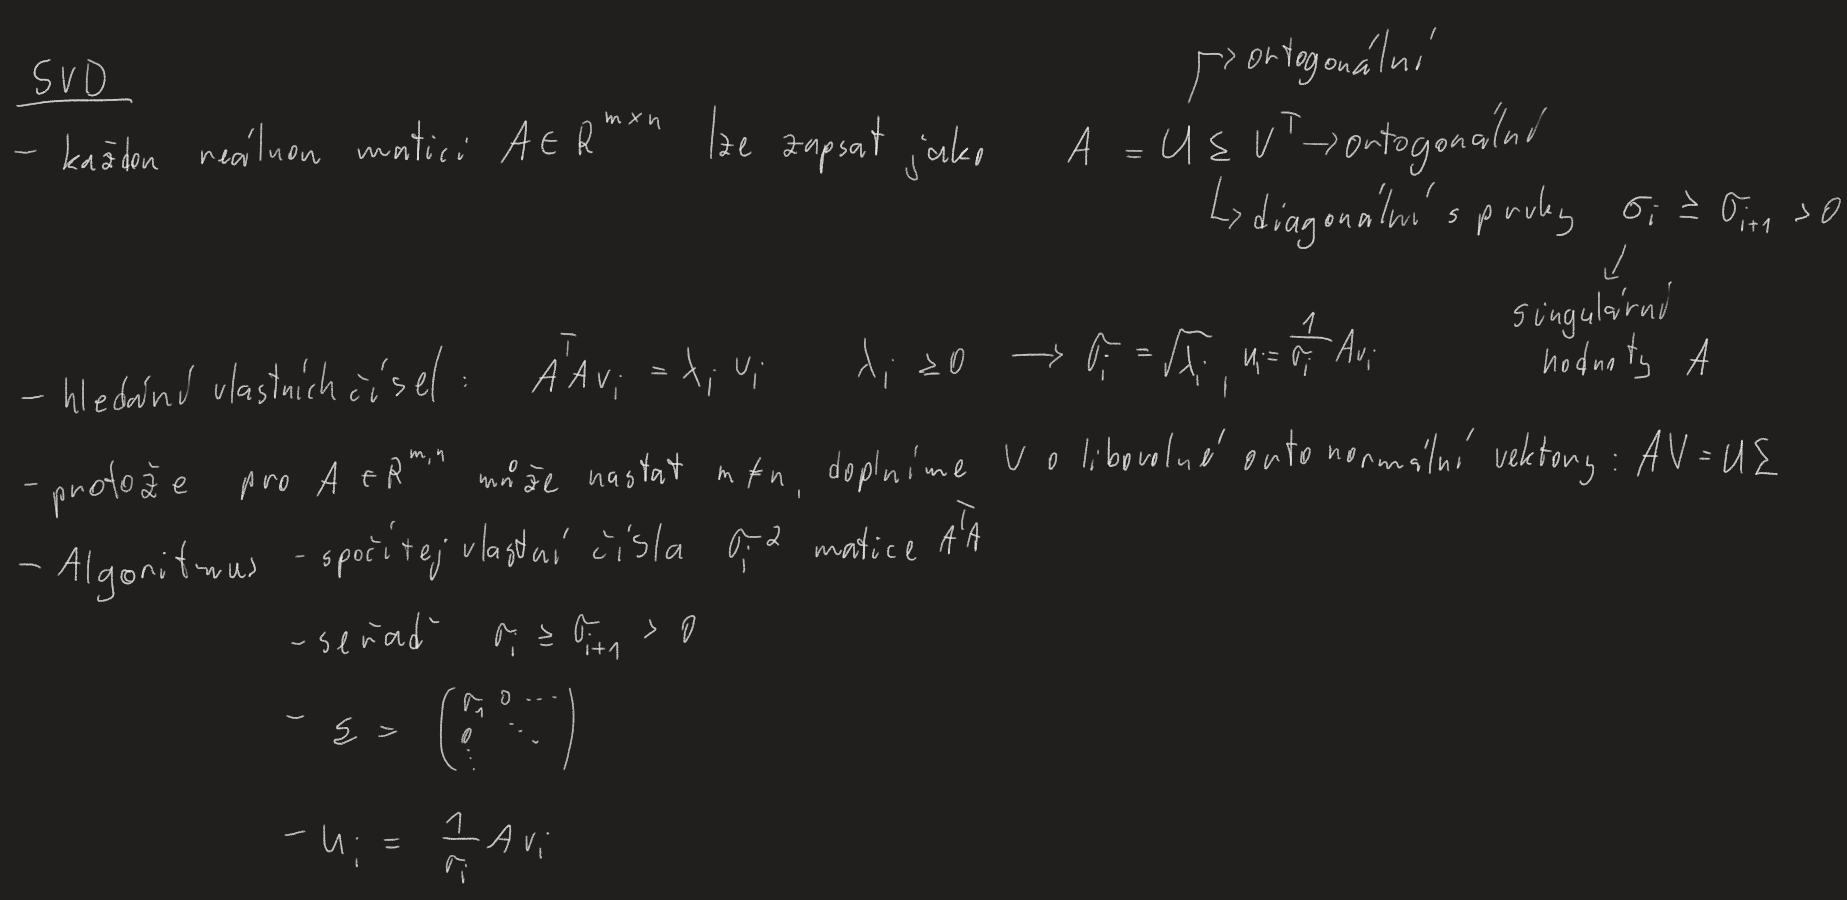 SVD
→ ortogonální
- každou reálnou matici A ∈ R^{m×n} lze zapsat jako A = U Σ V^T → ortogonální
↳ diagonální s prvky σ_i ≥ σ_{i+1} > 0
↙
singulární
hodnoty A
- hledání vlastních čísel: A^T A v_i = λ_i v_i λ_i ≥ 0 → σ_i = √λ_i, u_i = 1/σ_i A v_i
- protože pro A ∈ R^{m,n} může nastat m ≠ n, doplníme V o libovolné ortonormální vektory: AV = UΣ
- Algoritmus - spočítej vlastní čísla σ_i^2 matice A^T A
- seřaď σ_i ≥ σ_{i+1} > 0
- Σ = (σ_1 0 ⋯
0 ⋱
⋮ )
- u_i = 1/σ_i A v_i